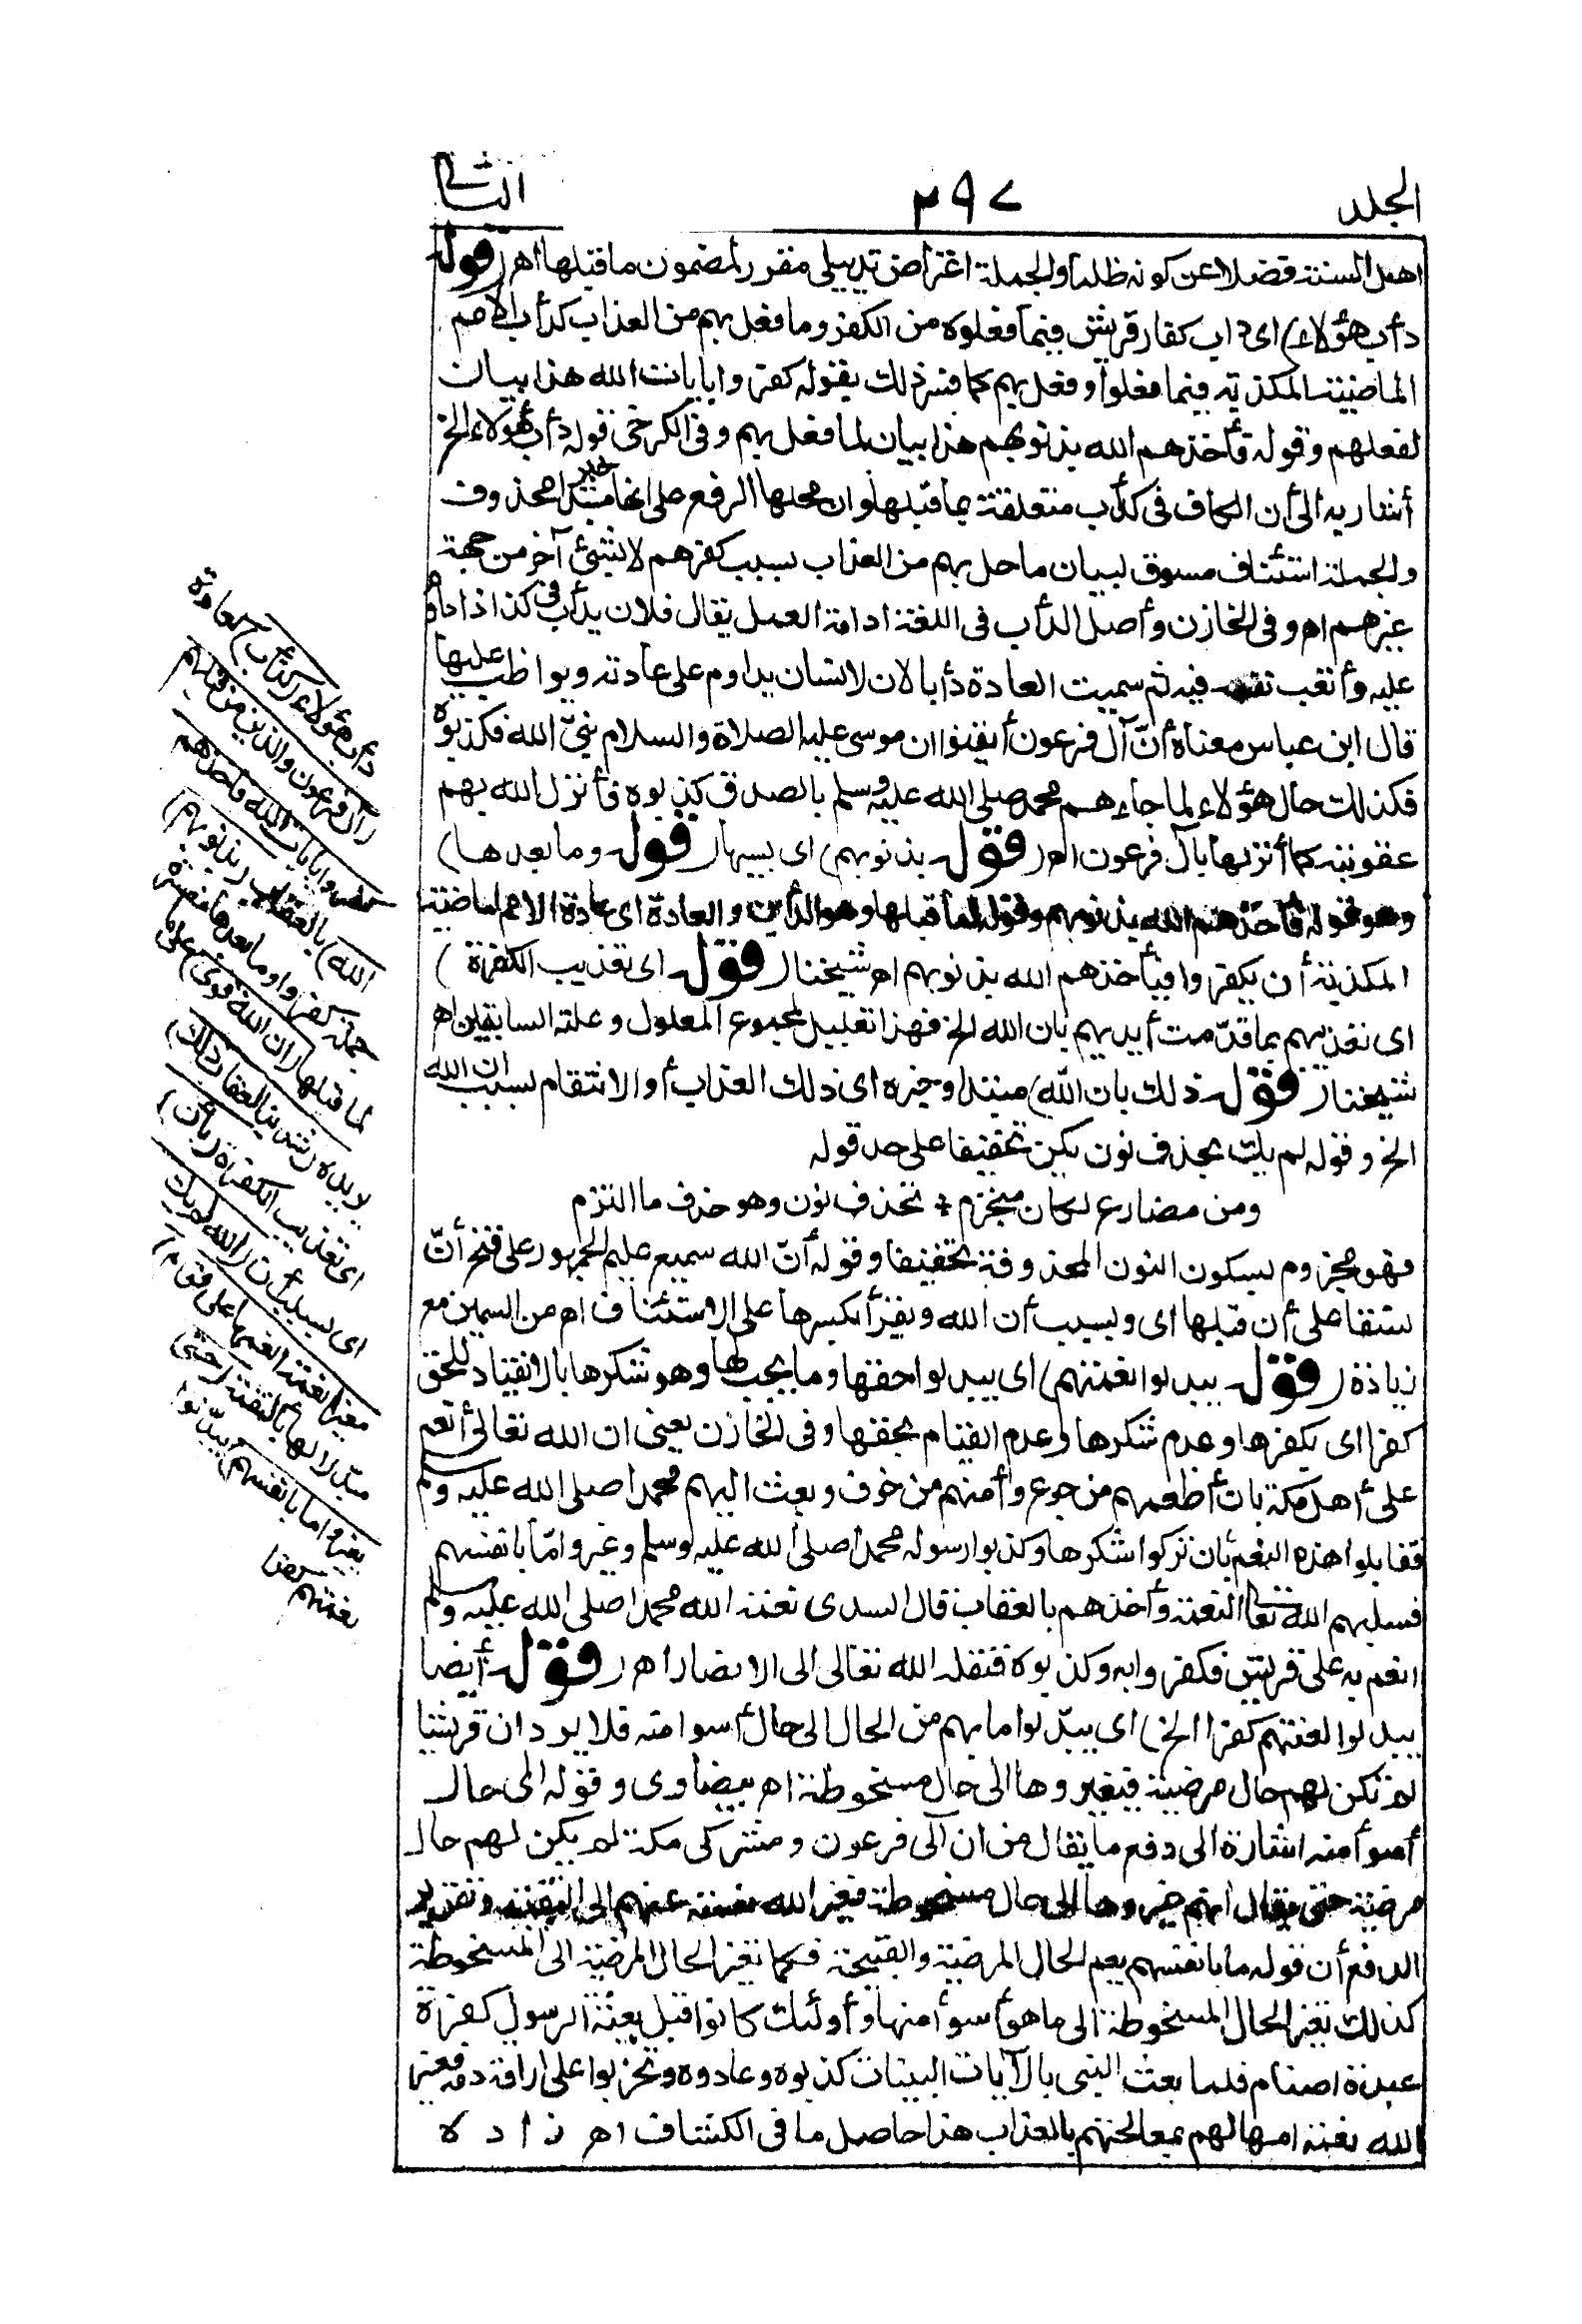 الجلد ٢٩٧ الثانى
اهل السنة فضلا عن كونه ظلما والجملة اعتراض تذييلى مقرر لمضمون ما قبلها اهـ (قوله
دأب هؤلاء) اى دأب كفار قريش فيما فعلوه من الكفر وما فعل بهم من العذاب كدأب الامم
الماضية المكذبة فيما فعلوا وفعل بهم كما فسر ذلك بقوله كفروا بايات الله هذا بيان
لفعلهم وقوله فأخذهم الله بذنوبهم هذا بيان لما فعل بهم وفى الكرخى قوله دأب هؤلاء الخ
أشار به الى أن الكاف فى كدأب متعلقة بما قبلها وان محلها الرفع على انها خبر مبتدا محذوف
والجملة استئناف مسوق لبيان ما حل بهم من العذاب بسبب كفرهم لا بشئ آخر من جهة
غيرهم اهـ وفى الخازن وأصل الدأب فى اللغة ادامة العمل يقال فلان يدأب فى كذا اذا داوم
عليه وأتعب نفسه فيه ثم سميت العادة دأبا لان الانسان يداوم على عادته ويواظب عليها
قال ابن عباس معناه أنّ آل فرعون أيقنوا ان موسى عليه الصلاة والسلام نبىّ الله فكذبوه
فكذلك حال هؤلاء لما جاءهم محمد صلى الله عليه وسلم بالصدق كذبوه فأنزل الله بهم
عقوبته كما أنزلها بآل فرعون اهـ (قوله بذنوبهم) اى بسببها (قوله وما بعدها)
وهو قوله فأخذهم الله بذنوبهم وقوله لما قبلها وهو الدأبين والعادة اى عادة الامم الماضية
المكذبة أن يكفروا فيأخذهم الله بذنوبهم اهـ شيخنا (قوله اى تعذيب الكفرة)
اى تعذيبهم بما قدّمت أيديهم بان الله الخ فهذا تعليل لمجموع المعلول وعلته السابقين اهـ
شيخنا (قوله ذلك بان الله) مبتدا وخبره اى ذلك العذاب أو الانتقام بسبب ان الله
الخ وقوله لم يك بحذف نون يكن تخفيفا على حد قوله
ومن مضارع لكان منجزم + تحذف نون وهو حذف ما التزم
فهو مجزوم بسكون النون المحذوفة تخفيفا وقوله أنّ الله سميع عليم الجمهور على فتح أنّ
نسقا على أن قبلها اى وبسبب أن الله ويقرأ بكسرها على الاستئناف اهـ من السمين مع
زيادة (قوله يبدلوا نعمتهم) اى يبدلوا حقها وما يجب لها وهو شكرها بالانقياد للحق
كفرا اى بكفرها وعدم شكرها وعدم القيام بحقها وفى الخازن يعنى ان الله تعالى أنعم
على أهل مكة بان أطعمهم من جوع وأمنهم من خوف وبعث اليهم محمدا صلى الله عليه وسلم
فقابلوا هذه النعم بان تركوا شكرها وكذبوا رسوله محمدا صلى الله عليه وسلم وغيروا ما بانفسهم
فسلبهم الله تعالى النعمة وأخذهم بالعقاب قال السدى نعمة الله محمدا صلى الله عليه وسلم
انعم به على قريش فكفروا به وكذبوه فنقله الله تعالى الى الانصار اهـ (قوله أيضا
يبدلوا نعمتهم كفرا الخ) اى يبدّلوا ما بهم من الحال الى حال أسوا منه فلا يرد ان قريشا
لم تكن لهم حال مرضية فيغيروها الى حال مسخوطة اهـ بيضاوى وقوله الى حال
أسوأ منه اشارة الى دفع ما يقال من ان آل فرعون ومشركى مكة لم يكن لهم حال
مرضية حتى يقال انهم غيروها الى حال مسخوطة فيغير الله نعمته عنهم الى النقمة وتقرير
الدفع أن قوله ما بانفسهم يعم الحال المرضية والقبيحة فكما تغير الحال المرضية الى المسخوطة
كذلك تغير الحال المسخوطة الى ما هو أسوأ منها وأولئك كانوا قبل بعثة الرسول كفرة
عبدة اصنام فلما بعث النبى بالآيات البينات كذبوه وعادوه وتحزبوا على اراقة دمه فغير
الله نعمة امهالهم بمعالجتهم بالعذاب هذا حاصل ما فى الكشاف اهـ زاده
دأب هؤلاء (كدأب) كعادة
(آل فرعون والذين من قبلهم
كفروا بايات الله فاخذهم
الله) بالعقاب (بذنوبهم)
جملة كفروا وما بعدها مفسرة
لما قبلها (ان الله قوى) على ما
يريده (شديد العقاب ذلك)
اى تعذيب الكفرة (بأن)
اى بسبب أن (الله لم يك
مغيرا نعمة انعمها على قوم)
مبدّلا لها بالنقمة (حتى
يغيروا ما بانفسهم) يبدّلوا
نعمتهم كفرا